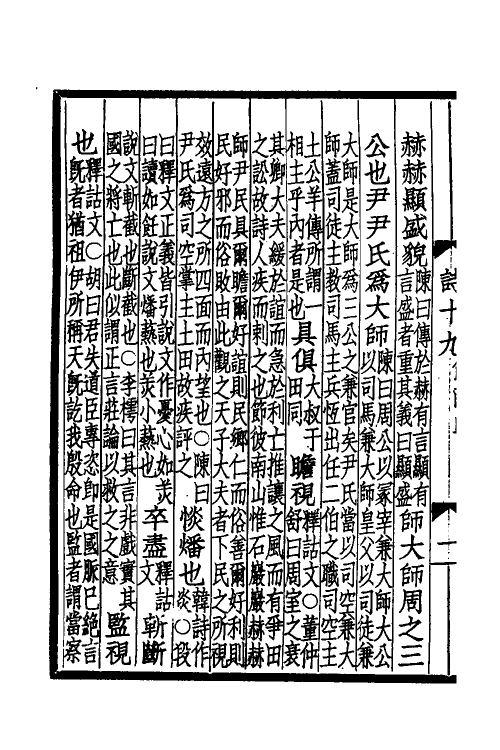 赫赫顯盛貌
陳曰傳於赫有言顯有
言盛者重其義曰顯盛
師大師周之三
公也尹尹氏爲大師
陳曰周公以冢宰兼大師大公
以司馬兼大師皇父以司徒兼
大師是大師爲三公之兼官矣尹氏當以司空兼大
師蓋司徒主教司馬主兵恆出任二伯之職司空主
土公羊傳所謂一
相主乎內者是也
具俱
大叔于
田同
瞻視
釋詁文○董仲
舒曰周室之衰
其卿大夫緩於誼而急於利亡推讓之風而有爭田
之訟故詩人疾而刺之也節彼南山惟石巖巖赫赫
師尹民具爾瞻爾好誼則民鄉仁而俗善爾好利則
民好邪而俗敗由此觀之天子大夫者下民之所視
效遠方之所四面而內望也○陳曰
尹氏爲司空掌主土田故疾評之
惔燔也
韓詩作
炎○段
曰釋文正義皆引說文作憂心如炗
曰讀如飪說文燔爇也炗小爇也
卒盡
釋詁
文
斬斷
說文斬截也斷截也○李樗曰其言非戲實其
國之將亡也此似謂正言莊論以救之之意
監視
也
釋詁文○胡曰君失道臣專恣卽是國脈已絕言
旣者猶祖伊所稱天旣訖我殷命也監者謂當察
詩十九
一